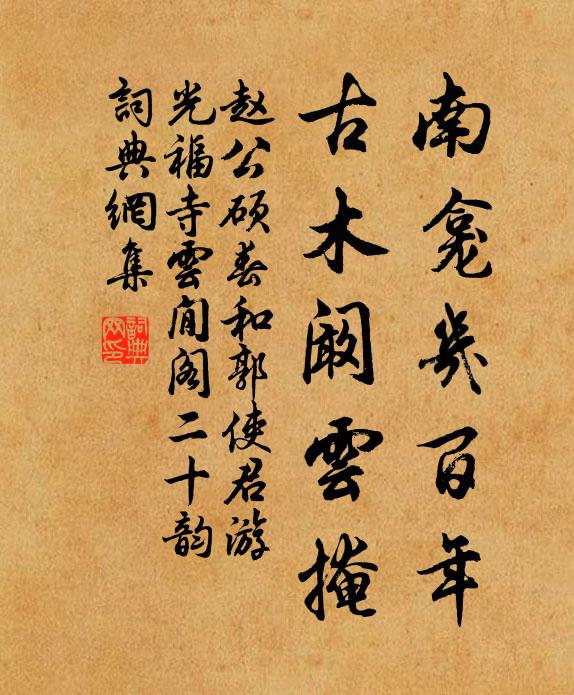 南龛几百年
古木阚雲掩
赵公硕春和郭使君游
光福寺雲间阁二十韵
詞典網集
詞典网印